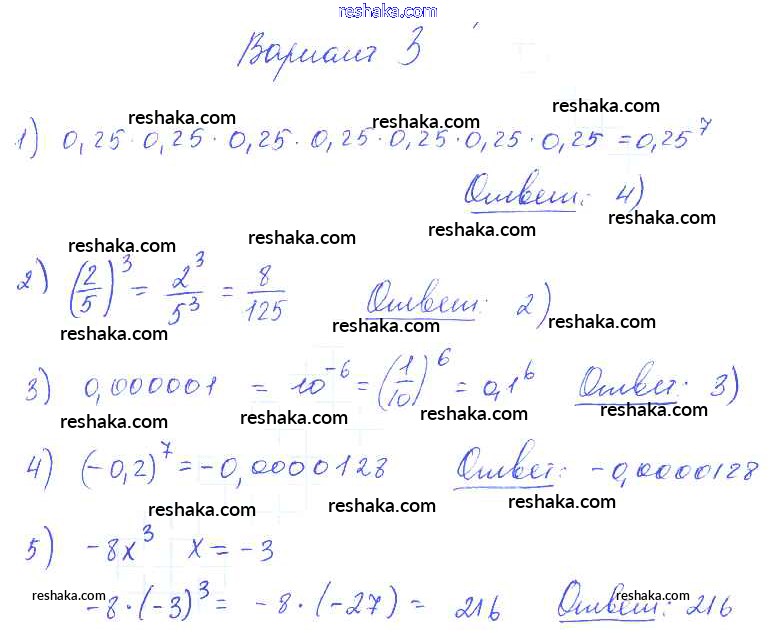 reshaka.com
Вариант 3
reshaka.com reshaka.com reshaka.com
1) 0,25 · 0,25 · 0,25 · 0,25 · 0,25 · 0,25 · 0,25 = 0,25^7
Ответ: 4)
reshaka.com reshaka.com reshaka.com reshaka.com
2) (2/5)^3 = 2^3/5^3 = 8/125 Ответ: 2)
reshaka.com reshaka.com reshaka.com
3) 0,000001 = 10^-6 = (1/10)^6 = 0,1^6 Ответ: 3)
reshaka.com reshaka.com reshaka.com reshaka.com
4) (-0,2)^7 = -0,0000128 Ответ: -0,0000128
reshaka.com reshaka.com reshaka.com
5) -8x^3 x = -3
reshaka.com reshaka.com reshaka.com reshaka.com
-8 · (-3)^3 = -8 · (-27) = 216 Ответ: 216